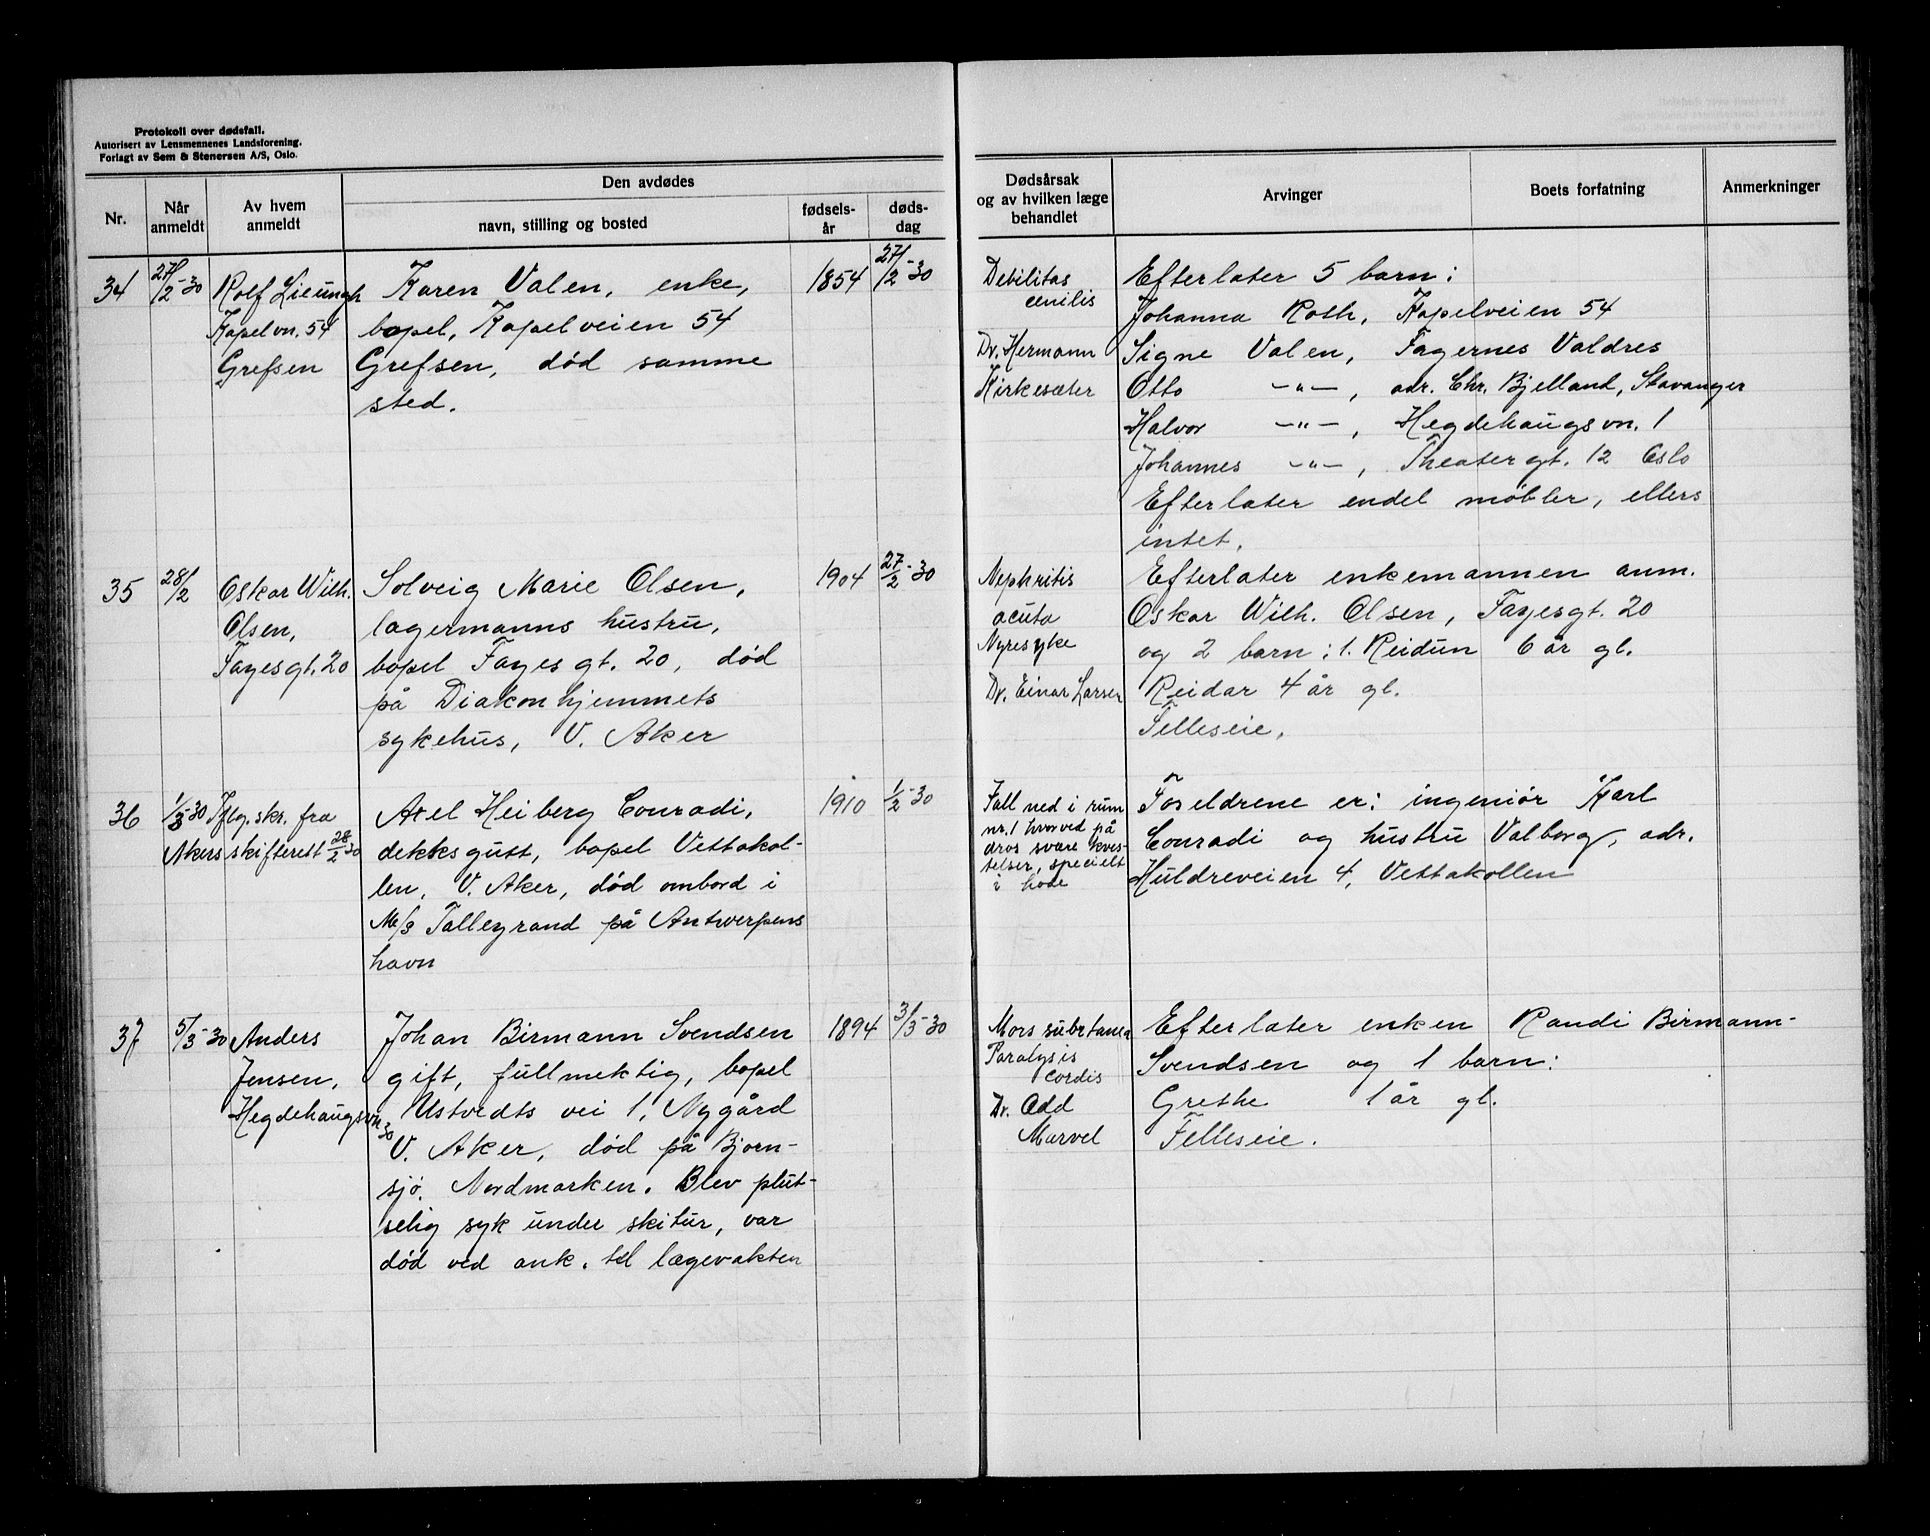 Protokoll over dødsfall.
Autorisert av Lensmennenes Landsforening.
Forlagt av Sem & Stenersen A/S, Oslo.
Nr.
Når anmeldt
Av hvem anmeldt
Den avdødes
navn, stilling og bosted
fødselsår
dødsdag
Dødsårsak og av hvilken læge behandlet
Arvinger
Boets forfatning
Anmerkninger
34
27/2-30
Rolf Lieungh
Kapelvn. 54
Grefsen
Karen Valen, enke,
bopel, Kapelveien 54
Grefsen, død samme
sted.
1854
27/2-30
Debilitas
cenilis
Dr. Hermann
Kirkesæter
Efterlater 5 barn:
Johanna Roth, Kapelveien 54
Signe Valen, Fagernes Valdres
Otto -"-, adr. Chr. Bjelland, Stavanger
Halvor -"-, Hegdehaugsvn. 1
Johannes -"-, Theatergt. 12 Oslo
Efterlater endel møbler, ellers
intet.
35
28/2
Oskar Wilh.
Olsen,
Fayesgt. 20
Solveig Marie Olsen,
lagermanns hustru,
bopel Fayesgt. 20, død
på Diakonhjemmets
sykehus, V. Aker
1904
27/2-30
Nephritis
acuta
Nyresyke
Dr. Einar Larsen
Efterlater enkemannen anm.
Oskar Wilh. Olsen, Fayesgt. 20
og 2 barn: 1. Reidun 6 år gl.
Reidar 4 år gl.
Felleseie.
36
1/3-30
Iflg. skr. fra
Akers skifterett 28/2 30
Axel Heiberg Conradi,
dekksgutt, bopel Vettakol-
len, V. Aker, død ombord i
M/S Talleyrand på Antwerpens
havn
1910
1/2-30
Fall ned i rum
nr. 1 hvorved på
drog svære kves-
telser, specielt
i hode
Foreldrene er: ingeniør Karl
Conradi og hustru Valborg, adr.
Huldreveien 4, Vettakollen
37
5/3-30
Anders
Jensen,
Hegdehaugsvn 30
Johan Birmann Svendsen
gift, fullmektig, bopel
Ustvedts vei 1, Nygård
V. Aker, død på Bjørn-
sjø, Nordmarken. Blev plut-
selig syk under skitur, var
død ved ank. til lægevakten
1894
3/3-30
Mors subitanea
Paralysis
cordis
Dr. Odd
Marvel
Efterlater enken Randi Birmann-
Svendsen og 1 barn:
Grethe 1 år gl.
Felleseie.